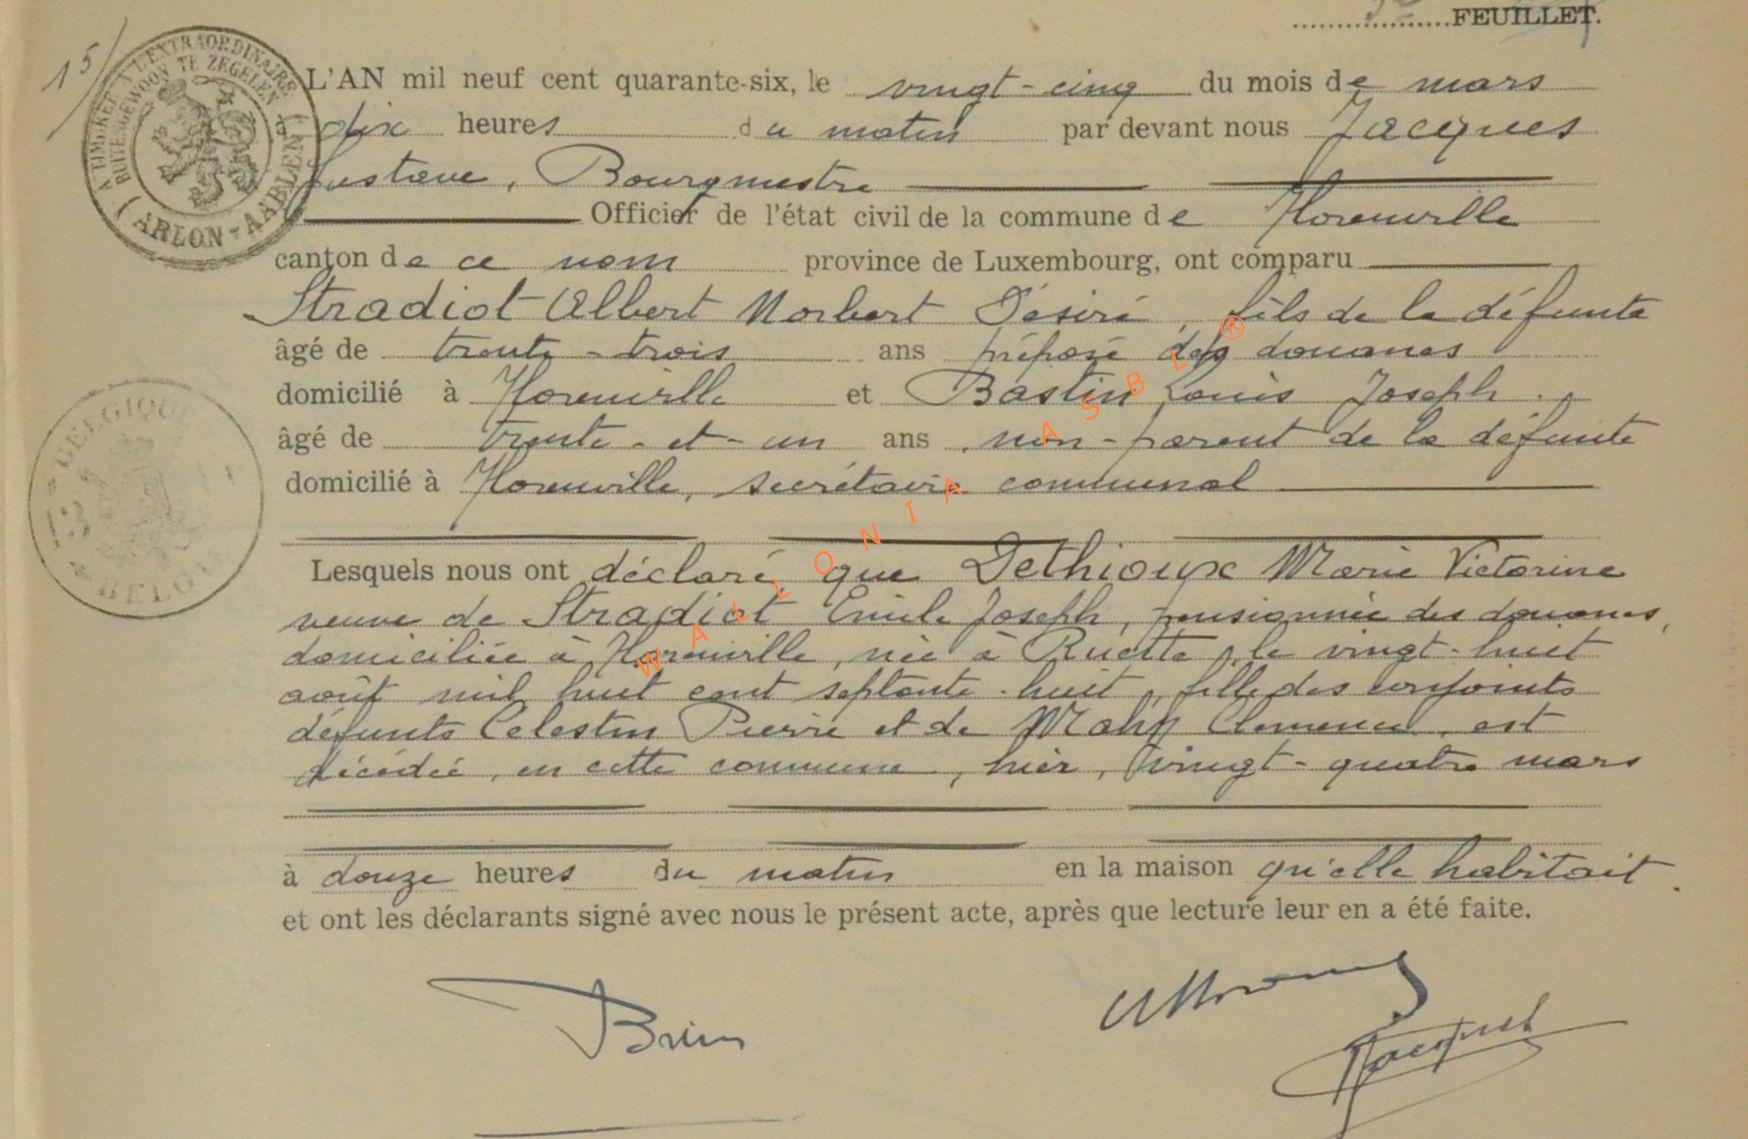 FEUILLET.
15/
A TIMBRER A L'EXTRAORDINAIRE
BUITENGEWOON TE ZEGELEN
(ARLON - AARLEN)
L'AN mil neuf cent quarante-six, le vingt-cinq du mois de mars
dix heures du matin par devant nous Jacques
Gustave, Bourgmestre
Officier de l'état civil de la commune de Florenville
canton de ce nom province de Luxembourg, ont comparu
Stradiot Albert Norbert Désiré, fils de la défunte
âgé de trente-trois ans préposé des douanes
domicilié à Florenville et Bastin Louis Joseph
âgé de trente-et-un ans, non-parent de la défunte
domicilié à Florenville, secrétaire communal
BELGIQUE
BELGI
WALLONIA ASBL ®
Lesquels nous ont déclaré que Dethioux Marie Victorine
veuve de Stradiot Emile Joseph, pensionnée des douanes,
domiciliée à Florenville, née à Ruette, le vingt-huit
août mil huit cent septante-huit, fille des conjoints
défunts Celestin Pierre et de Mahy Clemence, est
décédée, en cette commune, hier, vingt-quatre mars
à douze heures du matin en la maison qu'elle habitait.
et ont les déclarants signé avec nous le présent acte, après que lecture leur en a été faite.